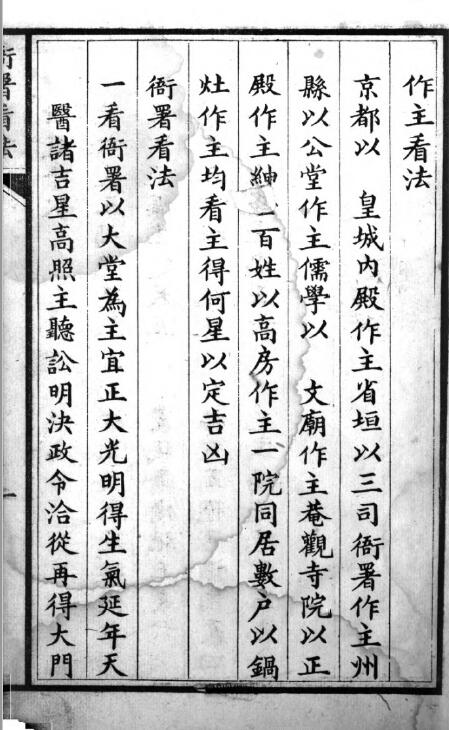 作主看法
京都以　皇城內殿作主省垣以三司衙署作主州
縣以公堂作主儒學以　文廟作主菴觀寺院以正
殿作主紳一百姓以高房作主一院同居數户以鍋
灶作主均看主得何星以定吉凶
衙署看法
一看衙署以大堂為主宜正大光明得生氣延年天
醫諸吉星高照主聽訟明決政令洽從再得大門
衙署看法
一